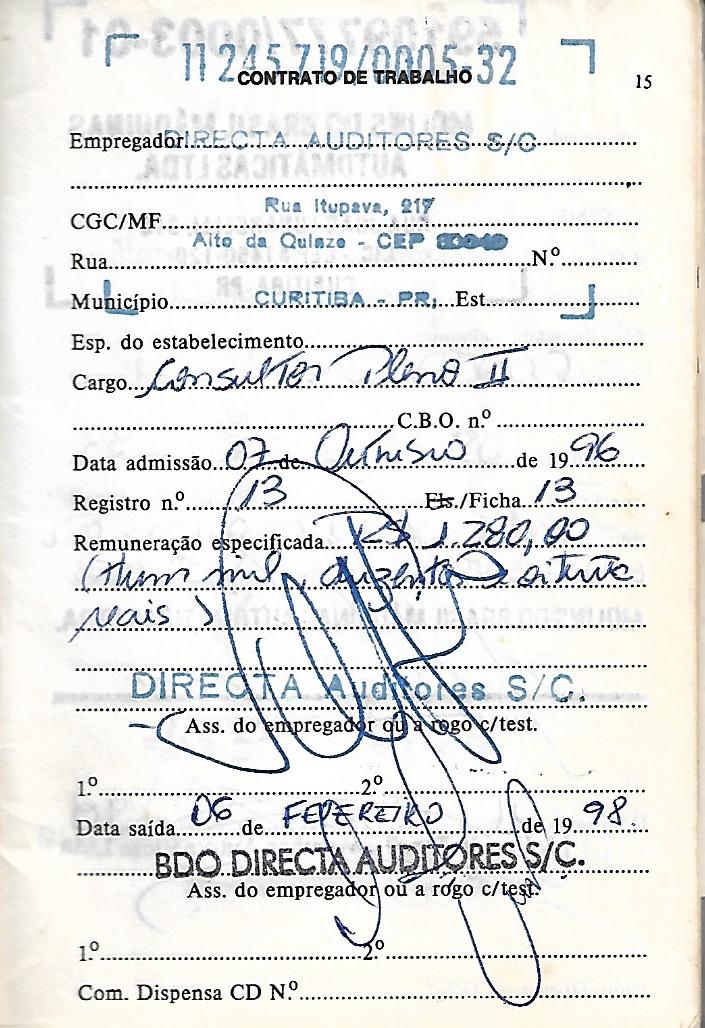 11 245 719/0005-32
CONTRATO DE TRABALHO
15
Empregador DIRECTA AUDITORES S/C
Rua Itupava, 217
CGC/MF
Alto da Quinze - CEP
Rua Nº
Município CURITIBA - PR. Est
Esp. do estabelecimento
Cargo Consultor Pleno II
C.B.O. n.º
Data admissão 07 de Outubro de 1996
Registro n.º 13 Fls./Ficha 13
Remuneração especificada R$ 1.280,00
(Hum mil, duzentos e oitenta
reais)
DIRECTA Auditores S/C.
Ass. do empregador ou a rogo c/test.
1.º 2.º
Data saída 06 de FEVEREIRO de 1998.
BDO DIRECTA AUDITORES S/C.
Ass. do empregador ou a rogo c/test.
1.º 2.º
Com. Dispensa CD N.º